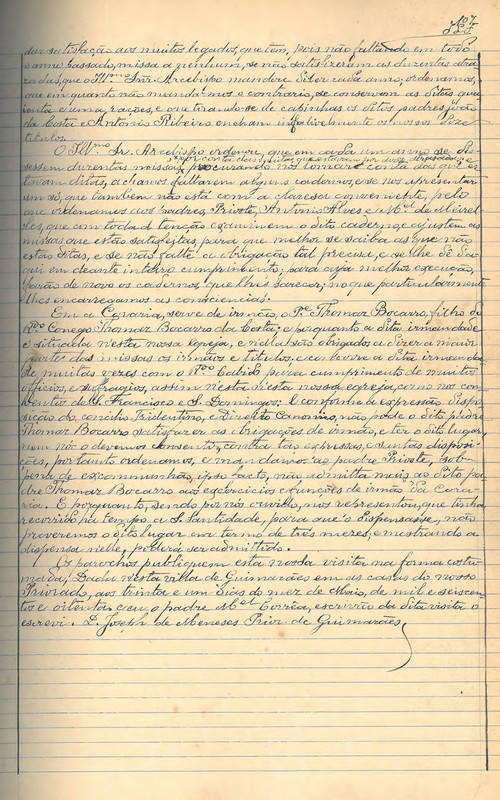 dar satisfação aos muitos legados, que tem, pois não faltando em todo
o anno passado, missa a nenhum, se não satisfizeram as duzentas atra
zadas, que o Ill.mo Snr. Arcebispo mandou dizer cada anno, ordenamos,
que em quanto não mandar mos o contrario, se conservem as ditas
e uma rações, e que tirando-se de capinhas os ditos padres, João
da Costa e António Ribeiro encham infalivelmente os nossos doze
titulos.
O Ill.mo Sr. Arcebispo ordenou, que em cada um anno se dis-
sessem duzentas missas, por conta das muitas que estavam por dizer atrazadas, e
procurando nós tomar conta das que es-
tavam ditas, achamos faltarem alguns cadernos, e se nos apresentar
um só, que tambem não está com a claresa conveniente, pelo
que ordenamos aos padres, Prioste, António Alves e M.el de Meirel-
les, que com toda a tenção examinem o dito caderno, e ajustem as
missas que estão satisfeitas, para que melhor se saiba as que não
estão ditas, e se não falte a obrigação tal precisa, e se lhe dê da-
qui em deante inteiro cumprimento, para cuja melhor execução,
farão de novo os cadernos, que lhes parecer, no que particularmente
lhes encarregamos as consciencias.
Em a Coraria, serve de irmão, o P.e Thomaz Bocarro, filho do
R.do Conego Thomaz Bocarro da Costa; e porquanto a dita irmandade
é situada nesta nossa egreja, e nella são obrigados a dizer a maior
parte das missas os irmãos e titulos, e concorre a dita irmanda-
de muitas vezes com o R.do Cabido para cumprimento de muitos
officios, e suffragios, assim nesta nossa egreja, como nos con-
ventos de S. Francisco e S. Domingos. E conforme a expressa dispo-
sição do concilio Tridentino, e Direito Canonico, não póde o dito padre
Thomaz Bocarro satisfazer as obrigações de irmão, e ter o dito lugar,
nem nós o devemos consentir, contra tão expressas, e santas disposi-
ções, portanto ordenamos, e mandamos ao padre Prioste, sob
pena de excommunhão, ipso facto, não admitta mais, ao dito pa-
dre Thomaz Bocarro aos exercicios e funções de irmão da Cora-
ria. E porquanto, sendo por nós ouvido, nos representou, que tinha
recorrido ha tempo a S. Santidade, para que o dispensasse, não
proveremos o dito lugar em termo de três mezes, e mostrando a
dispensa nelle, poderá ser admittido.
Os parochos publiquem esta nossa visita na forma costu-
mada. Dada nesta villa de Guimarães em as casas do nosso
Priorado, aos trinta e um dias do mez de Maio, de mil e seiscen-
tos e oitenta, e eu, o padre M.el Corrêa, escrivão da dita visita o
escrevi. D. Joseph de Meneses Prior de Guimarães